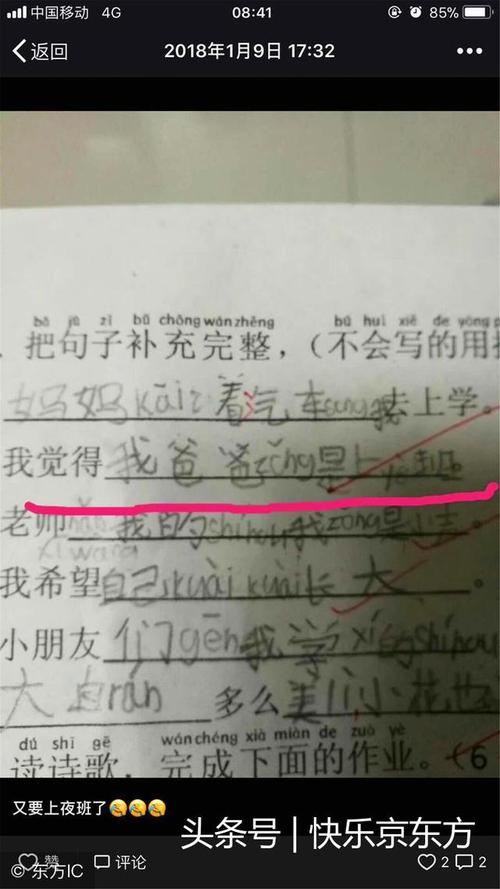 中国移动 4G 08:41 85%
返回 2018年1月9日 17:32
bǎ jù zǐ bǔ chōng wán zhěng bú huì xiě de yòng
把句子补充完整，（不会写的用
妈妈kāiz着汽车sòng我去上学。
我觉得我爸爸zǒng是上yè班。
老师 我的shíhou我zǒng是
xīwàng
我希望自己kuàikuài长大。
小朋友们gēn我学xí的shíhou
大自rán多么美lì小花
dú shī gē wán chéng xià miàn de zuò yè
读诗歌，完成下面的作业。（6
又要上夜班了😂😂😂
头条号 | 快乐京东方
赞 评论 2 2
© 东方IC